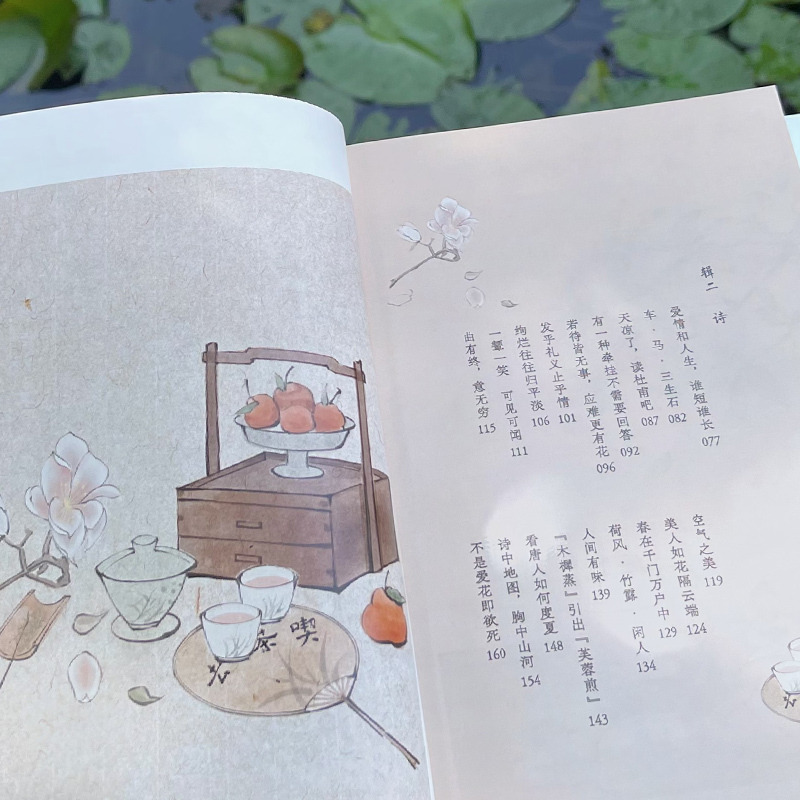 辑二 诗
爱情和人生，谁短谁长 077
车·马·三生石 082
天凉了，读杜甫吧 087
有一种牵挂不需要回答 092
若待皆无事，应难更有花 096
发乎礼义止乎情 101
绚烂往往归平淡 106
一颦一笑 可见可闻 111
曲有终，意无穷 115
空气之美 119
美人如花隔云端 124
春在千门万户中 129
荷风·竹露·闲人 134
人间有味 139
『木樨蒸』引出『芙蓉煎』 143
看唐人如何度夏 148
诗中地图，胸中山河 154
不是爱花即欲死 160
喫
茶